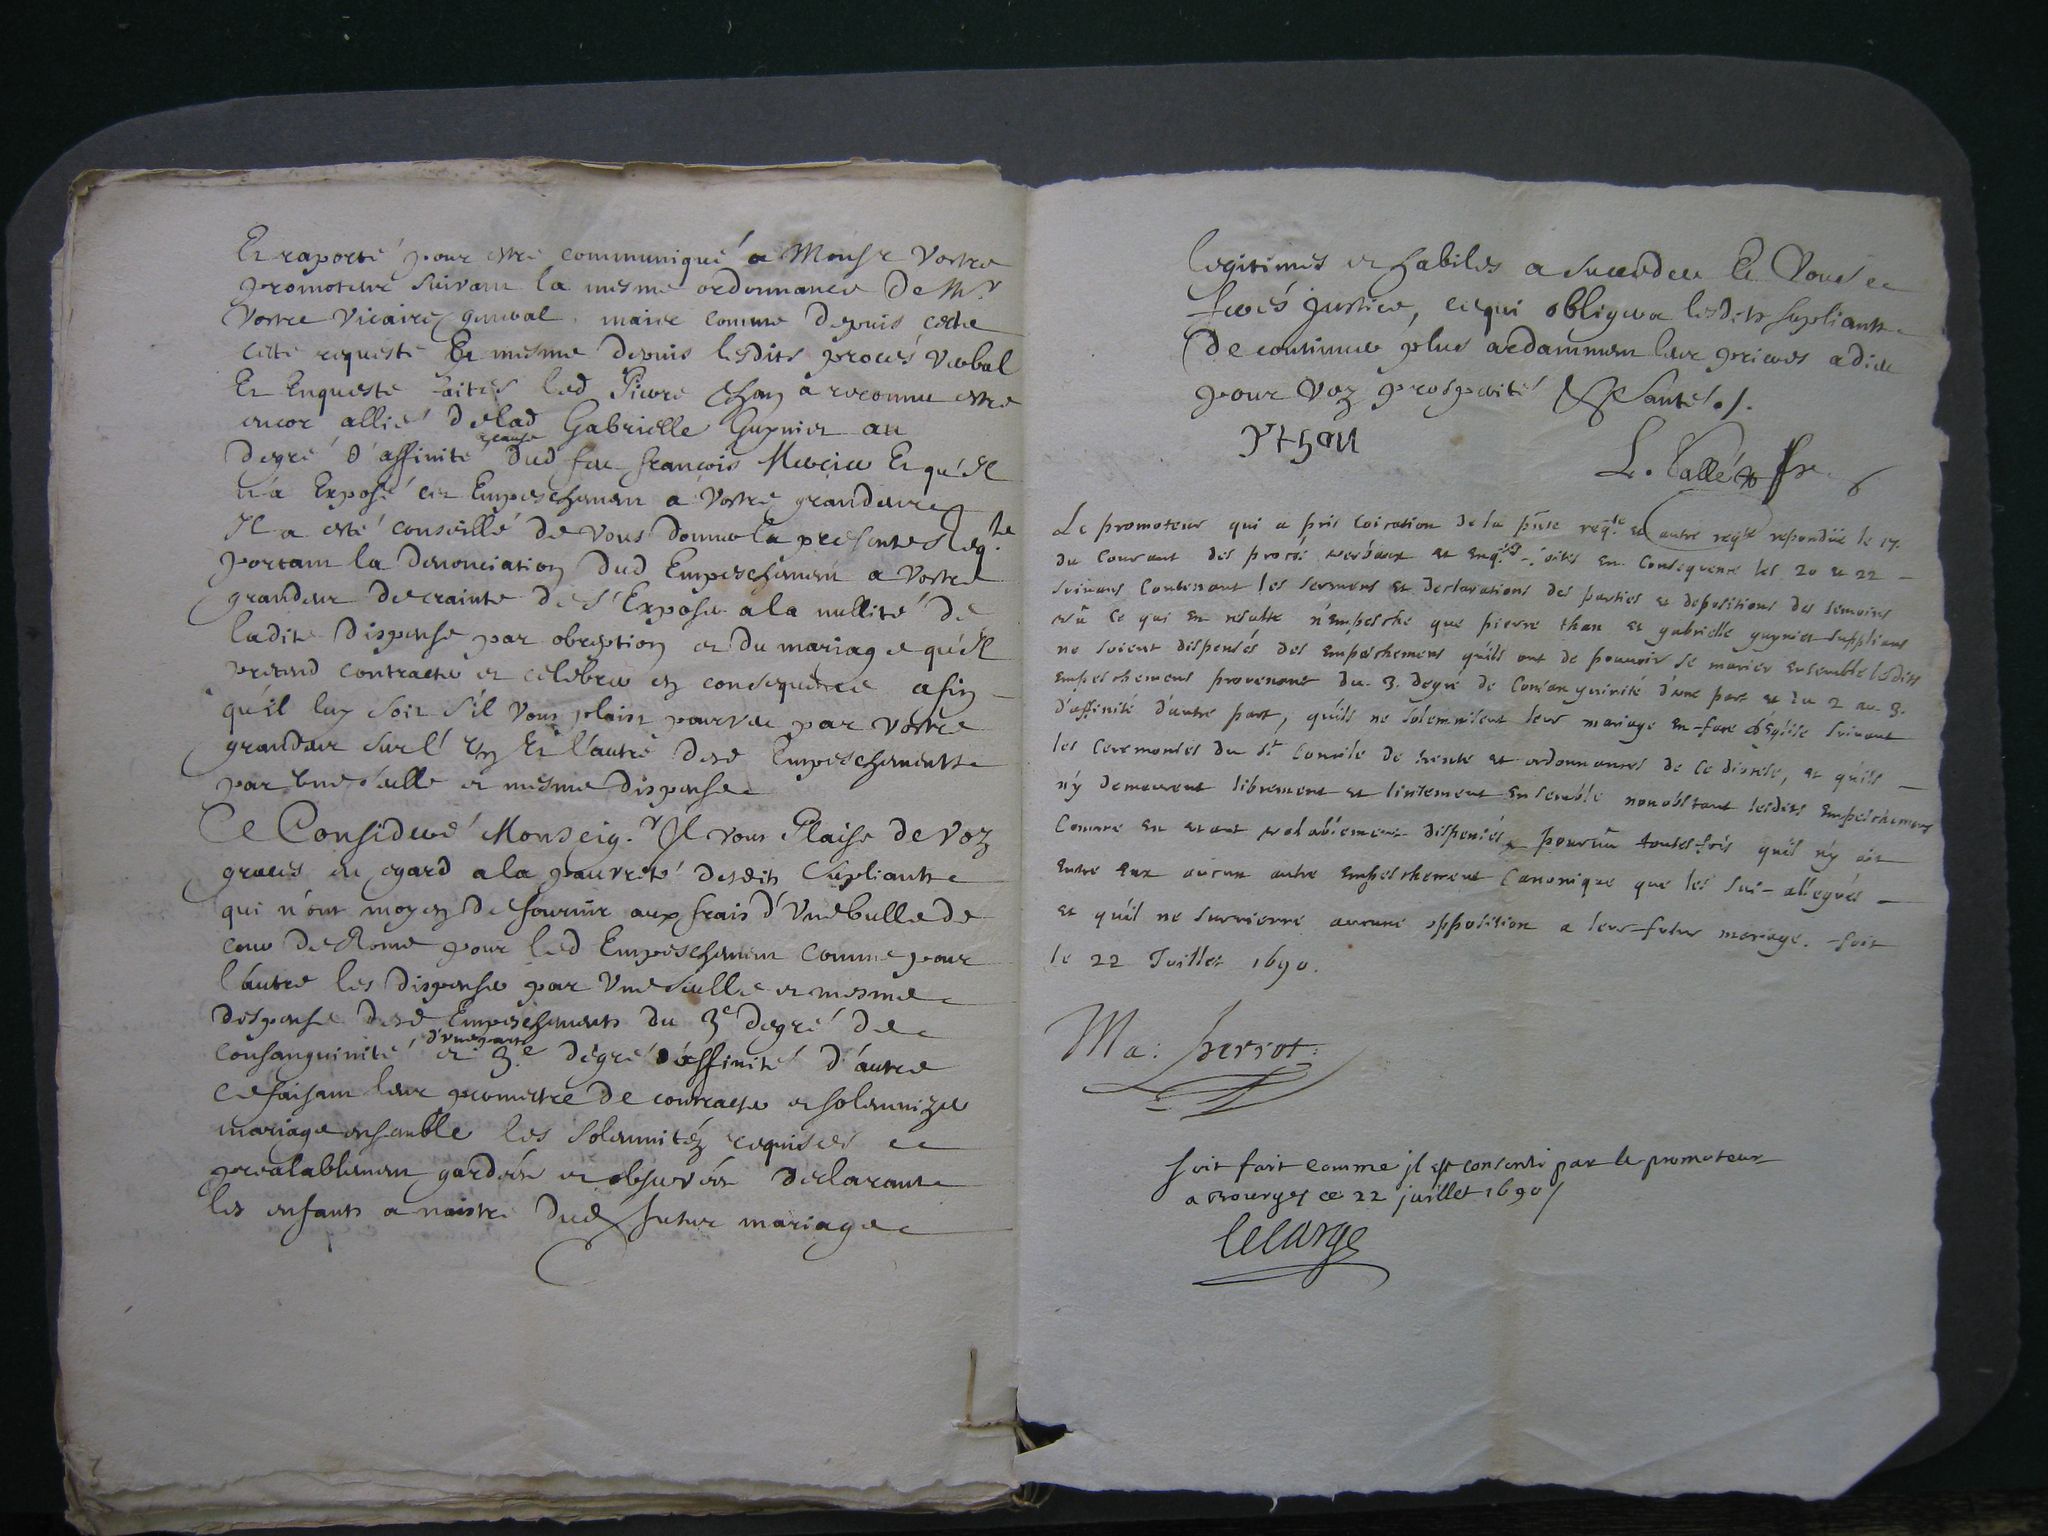 Et raporté pour estre communiqué a Monsr vostre
promoteur suivant la mesme ordonnance de Mr
vostre vicaire general mais comme depuis
cette requeste Et mesme depuis lesdits procés verbal
Et Enqueste faites led Pierre than a reconnu estre
encor allié de lad Gabrielle Guynier au
degré d'affinité a cause dud feu françois Mercier Et qu'il
n'a Exposé cet Empeschement a vostre grandeur
Il a esté conseillé de vous donner la presente Reqte
portant la denonciation dud Empeschement a vostre
grandeur de crainte de s'Exposer a la nullité de
ladite dispense par obreption et du mariage qu'il
pretend contracter et celebrer en consequence afin
qu'il luy soit s'il vous plaist pourveu par vostre
grandeur sur l'un Et l'autre desd Empeschements
par une seulle et mesme dispense
Ce Consideré Monseigr Il vous Plaise de voz
graces en egard a la pauvreté desdits supliants
qui n'ont moyen de fournir aux frais d'une bulle de
cour de Rome pour led Empeschement comme pour
l'autre les dispenser par une seulle et mesme
dispense desd Empeschements du 3e degré de
consanguinité d'une part et 3e degré d'affinité d'autre
ce faisant leur permettre de contracter et solemnizer
mariage ensemble les solemnitéz requises
prealablement gardées et observées declarant
les enfants a naistre dud futur mariage
legitimes et habiles a succeder Et vous
ferés justice, ce qui obligera lesdits supliants
de continuer plus ardamment leur prieres a dieu
pour voz prosperités & santé ./.
P than
L. Tallé
Le promoteur qui a pris coication de la pnte reqte et autre reqte repondüe le 17.
du courant des procés verbaux et enqtes faites en consequence les 20 et 22
suivans contenant les sermens et declarations des parties et depositions des temoins
et ce qui en resulte n'empesche que pierre than et gabrielle guynier supplians
ne soient dispensés des empeschemens qu'ils ont de pouvoir se marier ensemble lesdits
empeschemens provenant du 3. degré de consanguinité d'une part et du 2 au 3.
d'affinité d'autre part, qu'ils ne solemnisent leur mariage en face d'Eglise suivant
les ceremonies du st concile de trente et ordonnances de ce diocese, et qu'ils
n'y demeurent librement et licitement ensemble nonobstant lesdits empeschemens
comme en etant valablement dispensés, pourvû toutesfois qu'il n'y ait
entre eux aucun autre empeschement canonique que les sus-allegués
et qu'il ne survienne aucune opposition a leur futur mariage. fait
le 22 Juillet 1690.
Ma: herrot
soit fait comme jl est consenti par le promoteur
a Bourges ce 22 juillet 1690
lelarge